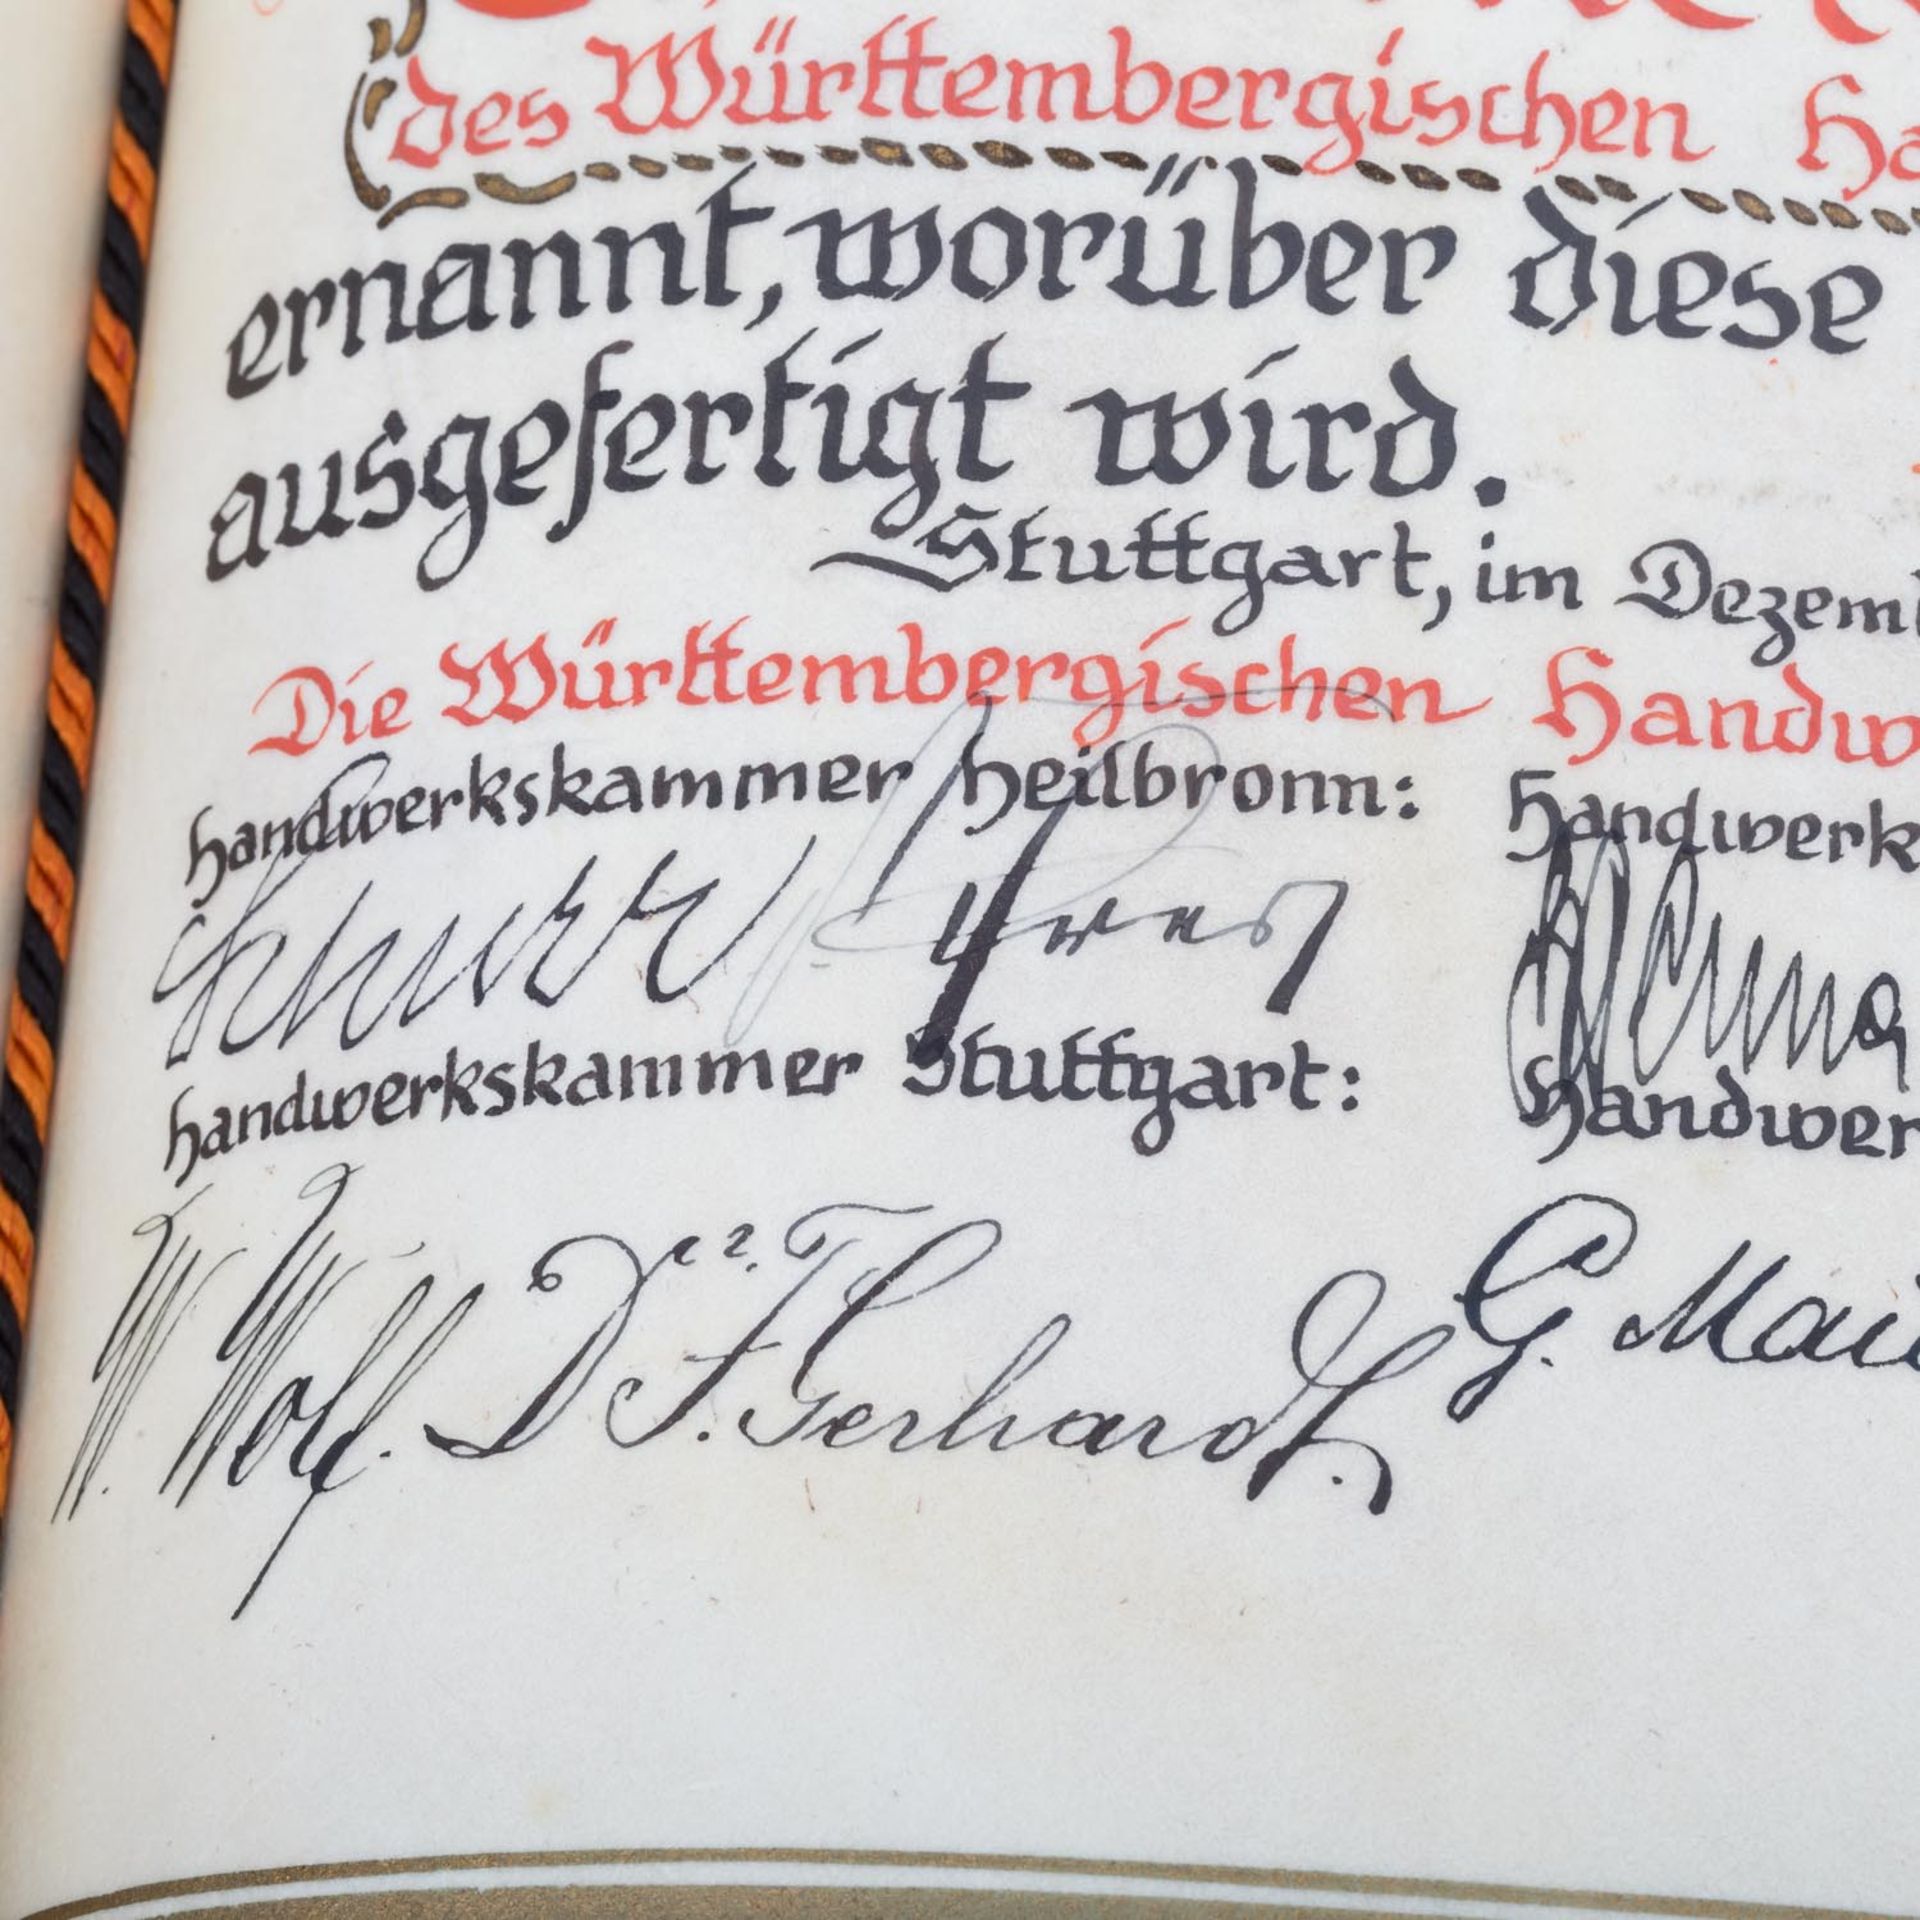 des Württembergischen Ha
ernannt, worüber diese
ausgefertigt wird.
Stuttgart, im Dezem
Die Württembergischen Handw
Handwerkskammer Heilbronn: Handwerk
Handwerkskammer Stuttgart: Handwer
W. Wolf. Dr. F. Gerhardt. G. Mai